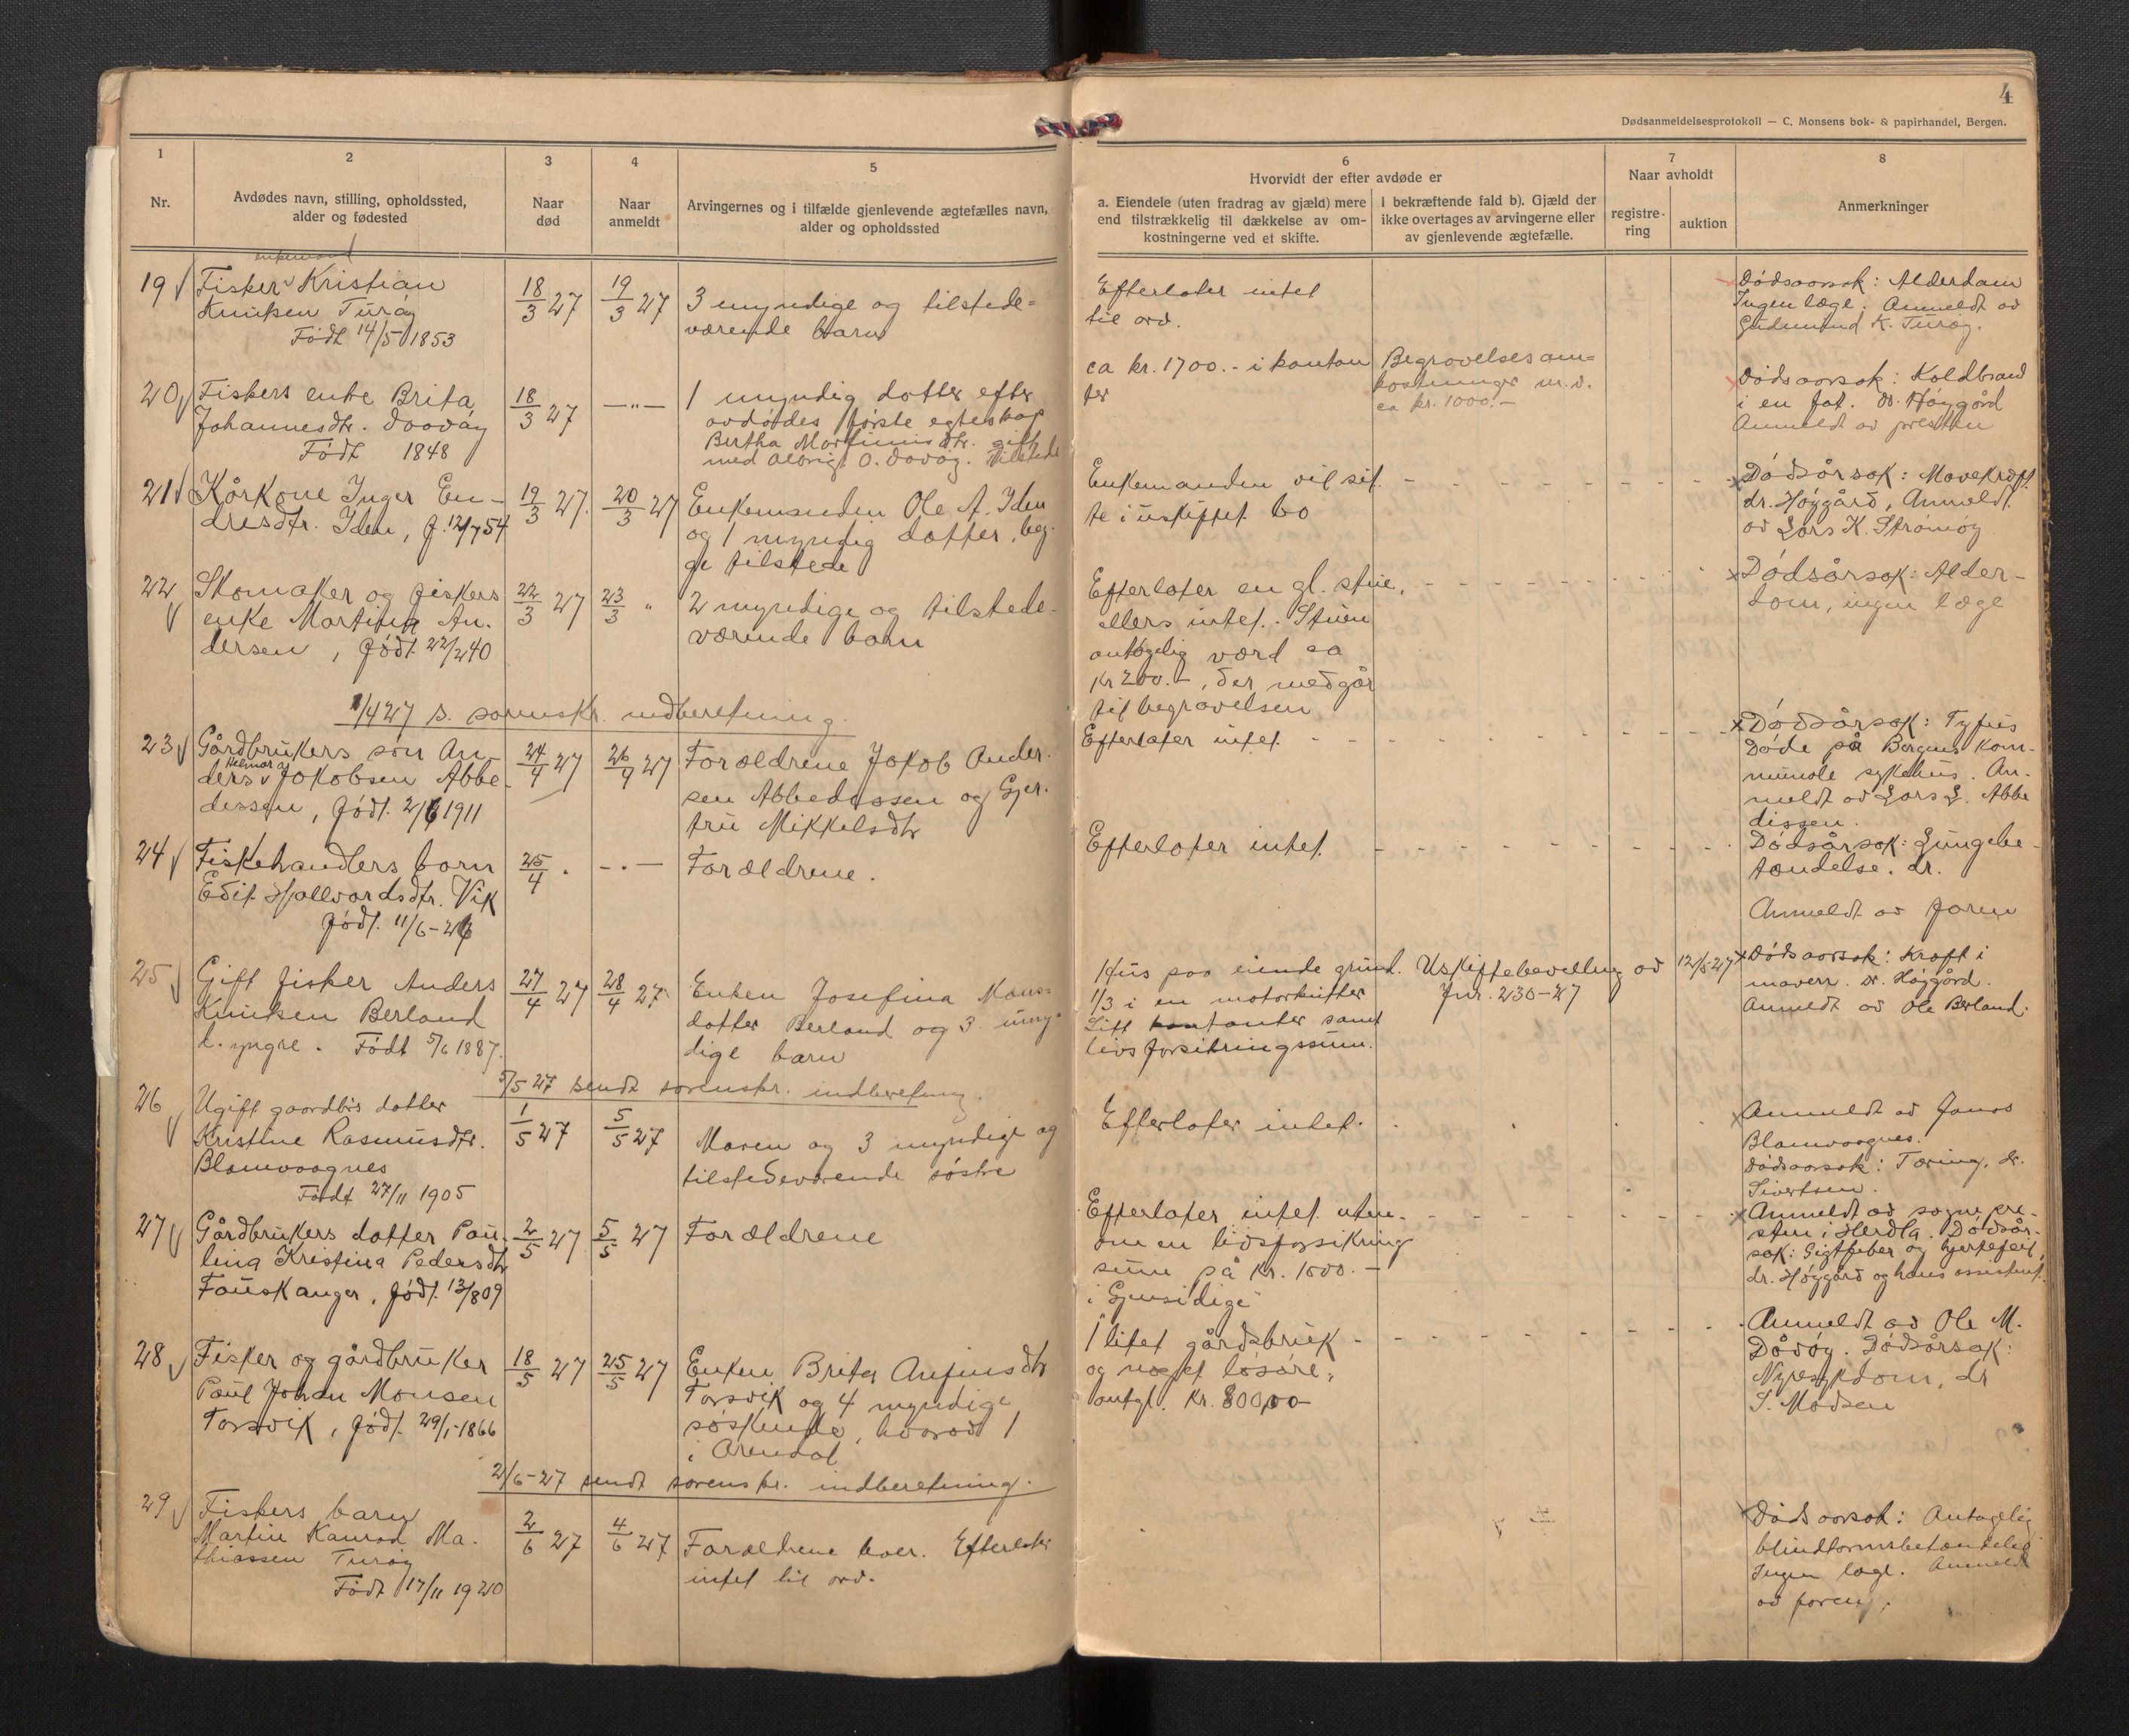 4
Dødsanmeldelsesprotokoll — C. Monsens bok- & papirhandel, Bergen.
1
Nr.
2
Avdødes navn, stilling, opholdssted,
alder og fødested
3
Naar
død
4
Naar
anmeldt
5
Arvingernes og i tilfælde gjenlevende ægtefælles navn,
alder og opholdssted
6
Hvorvidt der efter avdøde er
a. Eiendele (uten fradrag av gjæld) mere
end tilstrækkelig til dækkelse av om-
kostningerne ved et skifte.
I bekræftende fald b). Gjæld der
ikke overtages av arvingerne eller
av gjenlevende ægtefælle.
7
Naar avholdt
registre-
ring
auktion
8
Anmerkninger
19
enkemand
Fisker Kristian
Knutsen Turøy
Født 14/5 1853
18/3 27
19/3 27
3 myndige og tilstede=
værende barn
Efterlater intet
til ord.
Dødsaarsak: Alderdom
Ingen læge. Anmeldt av
Gudmund K. Turøy.
20
Fiskers enke Brita
Johannesdtr. Dovøy
Født 1848
18/3 27
—"—
1 myndig dotter efter
avdødes første egteskap
Bertha Martinusdtr. gift
med Aldrigt O. Dovøy. Tilstede
ca kr. 1700.- i kontan
ter
Begravelsesom=
kostninger m.v.
ca kr. 1000.-
Dødsaarsak: Koldbrand
i en fot. dr. Høygård
Anmeldt av presten
21
Kårkone Inger En-
dresdtr. Iden, f. 12/7 54
19/3 27.
20/3 27
Enkemanden Ole A. Iden
og 1 myndig dotter, beg-
ge tilstede
Enkemanden vil sit-
te i uskiftet bo
Dødsårsak: Mavekræft.
dr. Høygård, Anmeldt
av Lars K. Strømøy
22
Skomaker og fiskers
enke Martina An-
dersen, født 22/2 40
22/3 27
23/3 "
2 myndige og tilstede-
værende barn
Efterlater en gl. stue,
ellers intet. Stuen
antagelig værd ca
kr 200.-, der medgår
til begravelsen
Dødsårsak: Alder-
dom, ingen læge
1/4 27 s. sorenskr. indberetning.
23
Gårdbrukers søn An-
Helmer
ders Jakobsen Abbe-
dissen, født 2/6 1911
24/4 27
26/4 27
Forældrene Jakob Ander-
sen Abbedissen og Gjer-
tru Mikkelsdtr
Efterlater intet
Dødsårsak: Tyfus
Døde på Bergens kom-
munale sykehus. An-
meldt av Lars L. Abbe
dissen.
24
Fiskehandlers barn
Edit Hallvardsdtr. Vik
født 11/6-26
25/4 .
—.—
Forældrene.
Efterlater intet.
Dødsårsak: Lungebe-
tændelse. dr.
Anmeldt av faren
25
Gift fisker Anders
Knutsen Berland
d. yngre. Født 5/6 1887.
27/4 27
28/4 27
Enken Josefina Mons=
dotter Berland og 3 umyn=
dige barn
Hus paa eiende grund.
1/3 i en motorkutter
Litt kontanter samt
livsforsikringssum.
Uskiftebevilling av 12/5-27
Jnr. 230-27
Dødsaarsak: Kræft i
maven. dr. Høygård.
Anmeldt av Ole Berland.
5/5 27 sendt sorenskr. indberetning.
26
Ugift gaardbrs dotter
Kristine Rasmusdtr.
Blomvaagnes
Født 27/11 1905
1/5 27
5/5 27
Moren og 3 myndige og
tilstedeværende søstre
Efterlater intet.
Anmeldt av Jonas
Blomvaagnes.
Dødsaarsak: Tæring, dr.
Sivertsen.
27
Gårdbrukers dotter Pau-
lina Kristina Pedersdtr
Fauskanger, født 13/8 09
2/5 27
5/5 27
Forældrene
Efterlater intet uten-
om en livsforsikring
sum på kr. 1000.-
i "Gjensidige"
Anmeldt av sognepre-
sten i Herdla. Dødsår-
sak: Gigtfeber og hjertefeil,
dr. Høygård og hans assistent.
28
Fisker og gårdbruker
Paul Johan Monsen
Torsvik, født 29/1-1866
18/5 27
25/5 27
Enken Brita Anfinsdtr
Torsvik og 4 myndige
søskende, hvorav 1
i Arendal
1 litet gårdsbruk
og noget løsøre,
antgl. kr. 800,00
Anmeldt av Ole M.
Dåvøy. Dødsårsak:
Nyresykdom, dr
S. Madsen
2/6-27 sendt sorenskr. indberetning.
29
Fiskers barn
Martin Kanrad Ma-
thiassen Turøy
Født 17/11 1920
2/6 27
4/6 27
Forældrene lever. Efterlater
intet til ord.
Dødsaarsak: Antagelig
blindtarmsbetændelse
Ingen læge. Anmeldt
av faren.